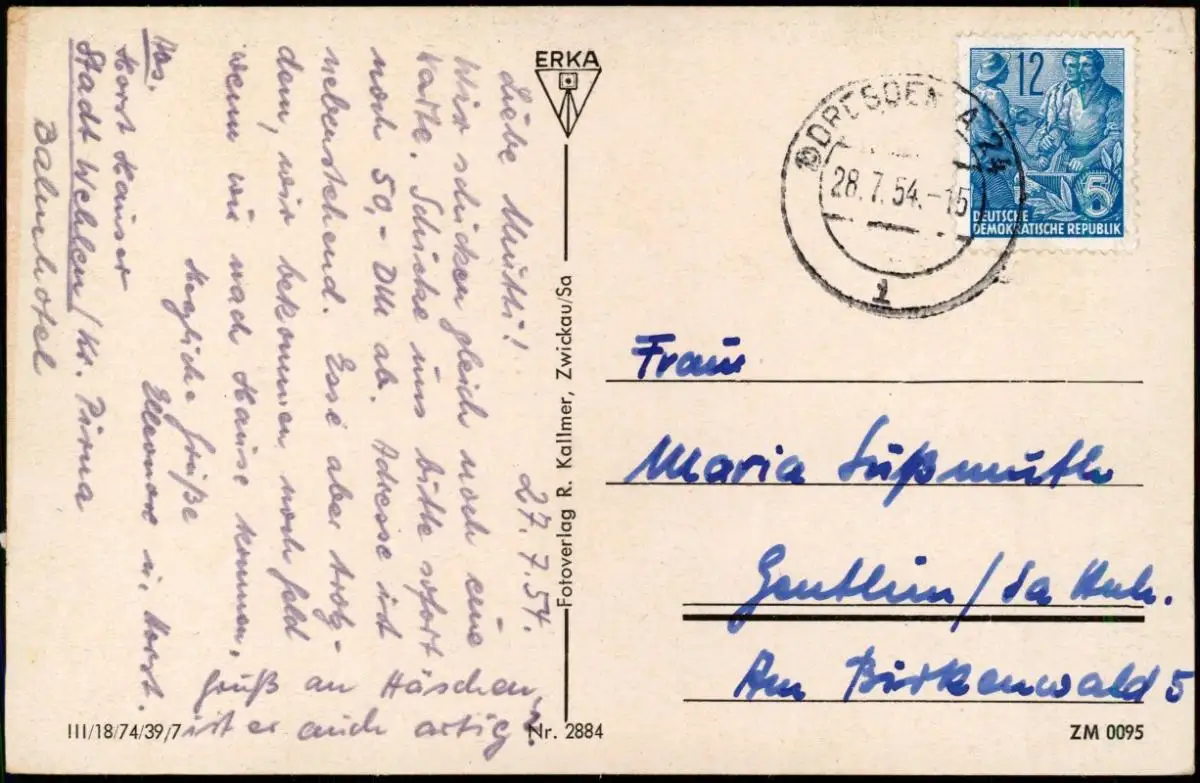 27. 7. 54.
Liebe Mutti!
Wir schicken gleich noch eine
Karte. Schicke uns bitte sofort
noch 50,- DM ab. Adresse ist
nebenstehend. Esse aber trotz-
dem, wir bekommen noch Geld
wenn wir nach Hause kommen.
Herzliche Grüße
Ellionore u. Horst.
Gruß an Häschen,
ist er auch artig?
Abs.
Horst Hauser
Stadt Wehlen/Kr. Pirna
Bahnhotel
ERKA
Fotoverlag R. Kallmer, Zwickau/Sa
III/18/74/39/7
Nr. 2884
DRESDEN A 24
28.7.54.-15
1
12
5
DEUTSCHE
DEMOKRATISCHE REPUBLIK
Frau
Maria Süßmuth
Genthin/Sa Anh.
Am Birkenwald 5
ZM 0095